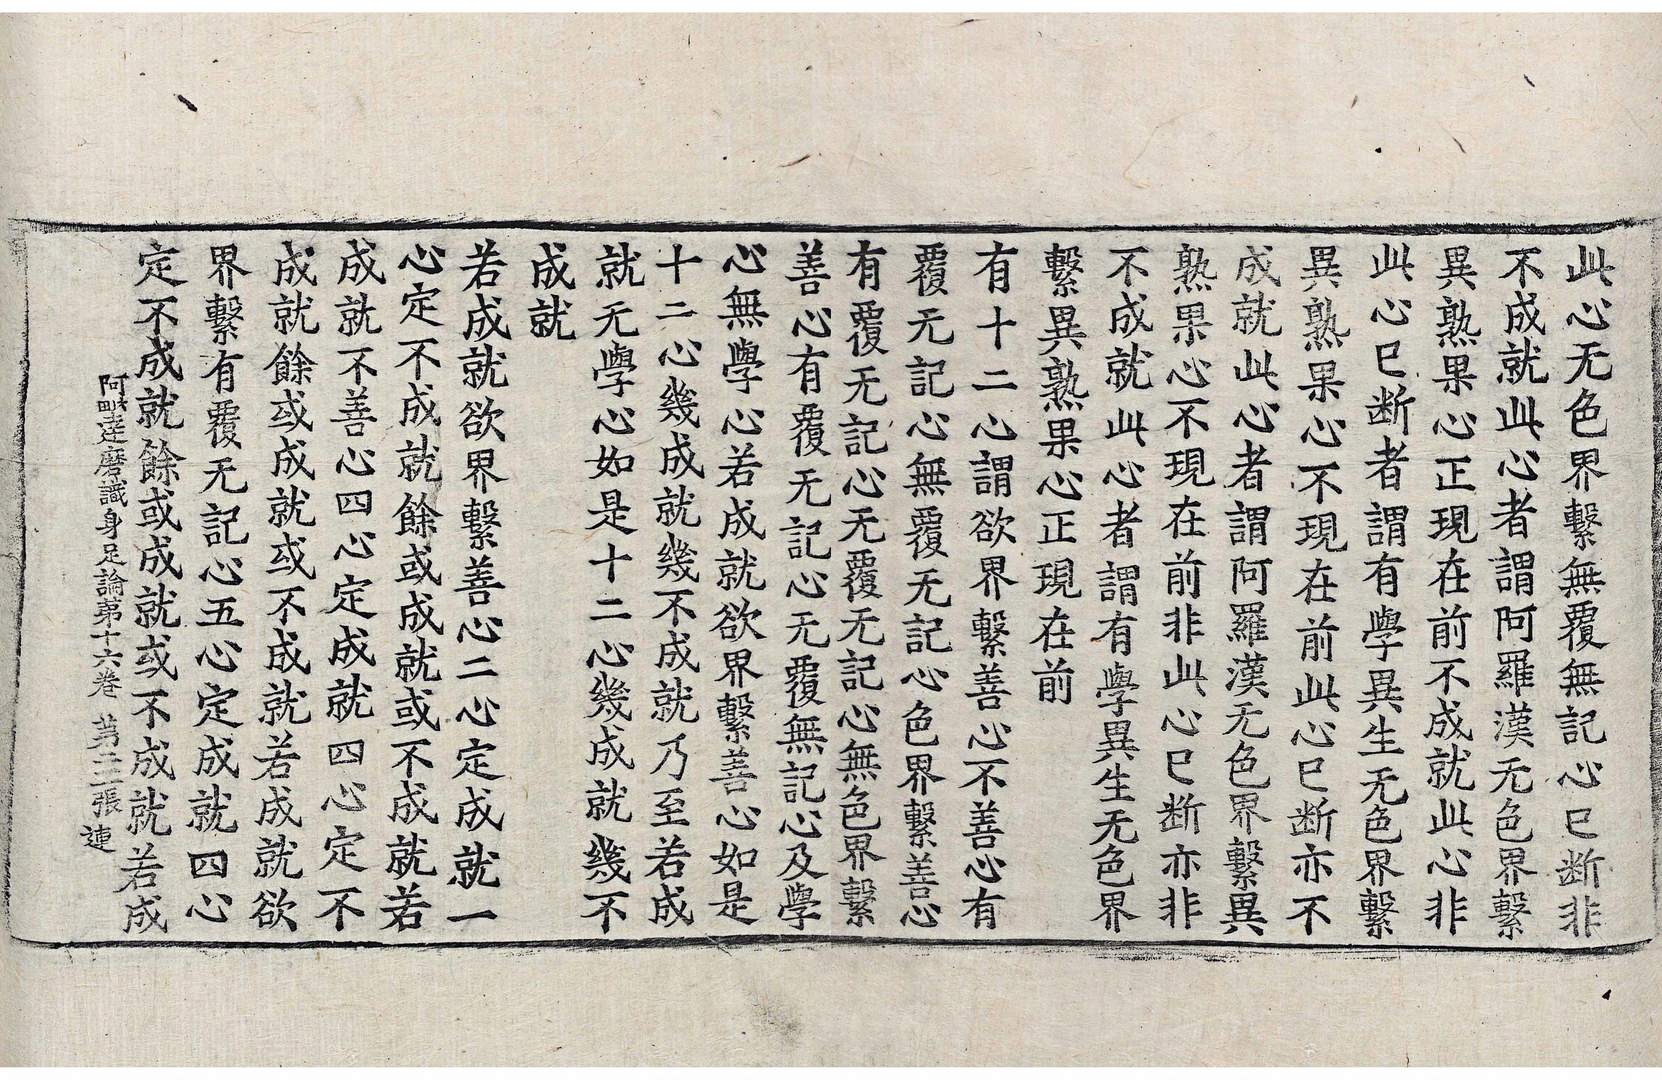 此心无色界繫無覆無記心已断非
不成就此心者謂阿羅漢无色界繫
異熟果心正現在前不成就此心非
此心已断者謂有學異生无色界繫
異熟果心不現在前此心已断亦不
成就此心者謂阿羅漢无色界繫異
熟果心不現在前非此心已断亦非
不成就此心者謂有學異生无色界
繫異熟果心正現在前
有十二心謂欲界繫善心不善心有
覆无記心無覆无記心色界繫善心
有覆无記心无覆无記心無色界繫
善心有覆无記心无覆無記心及學
心無學心若成就欲界繫善心如是
十二心幾成就幾不成就乃至若成
就无學心如是十二心幾成就幾不
成就
若成就欲界繫善心二心定成就一
心定不成就餘或成就或不成就若
成就不善心四心定成就四心定不
成就餘或成就或不成就若成就欲
界繫有覆无記心五心定成就四心
定不成就餘或成就或不成就若成
阿毗達磨識身足論苐十六卷 苐二張 連